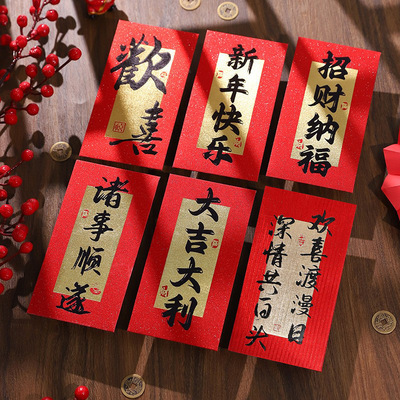 歡喜
新年快乐
招财纳福
诸事顺遂
大吉大利
欢喜渡漫日
深情共百头